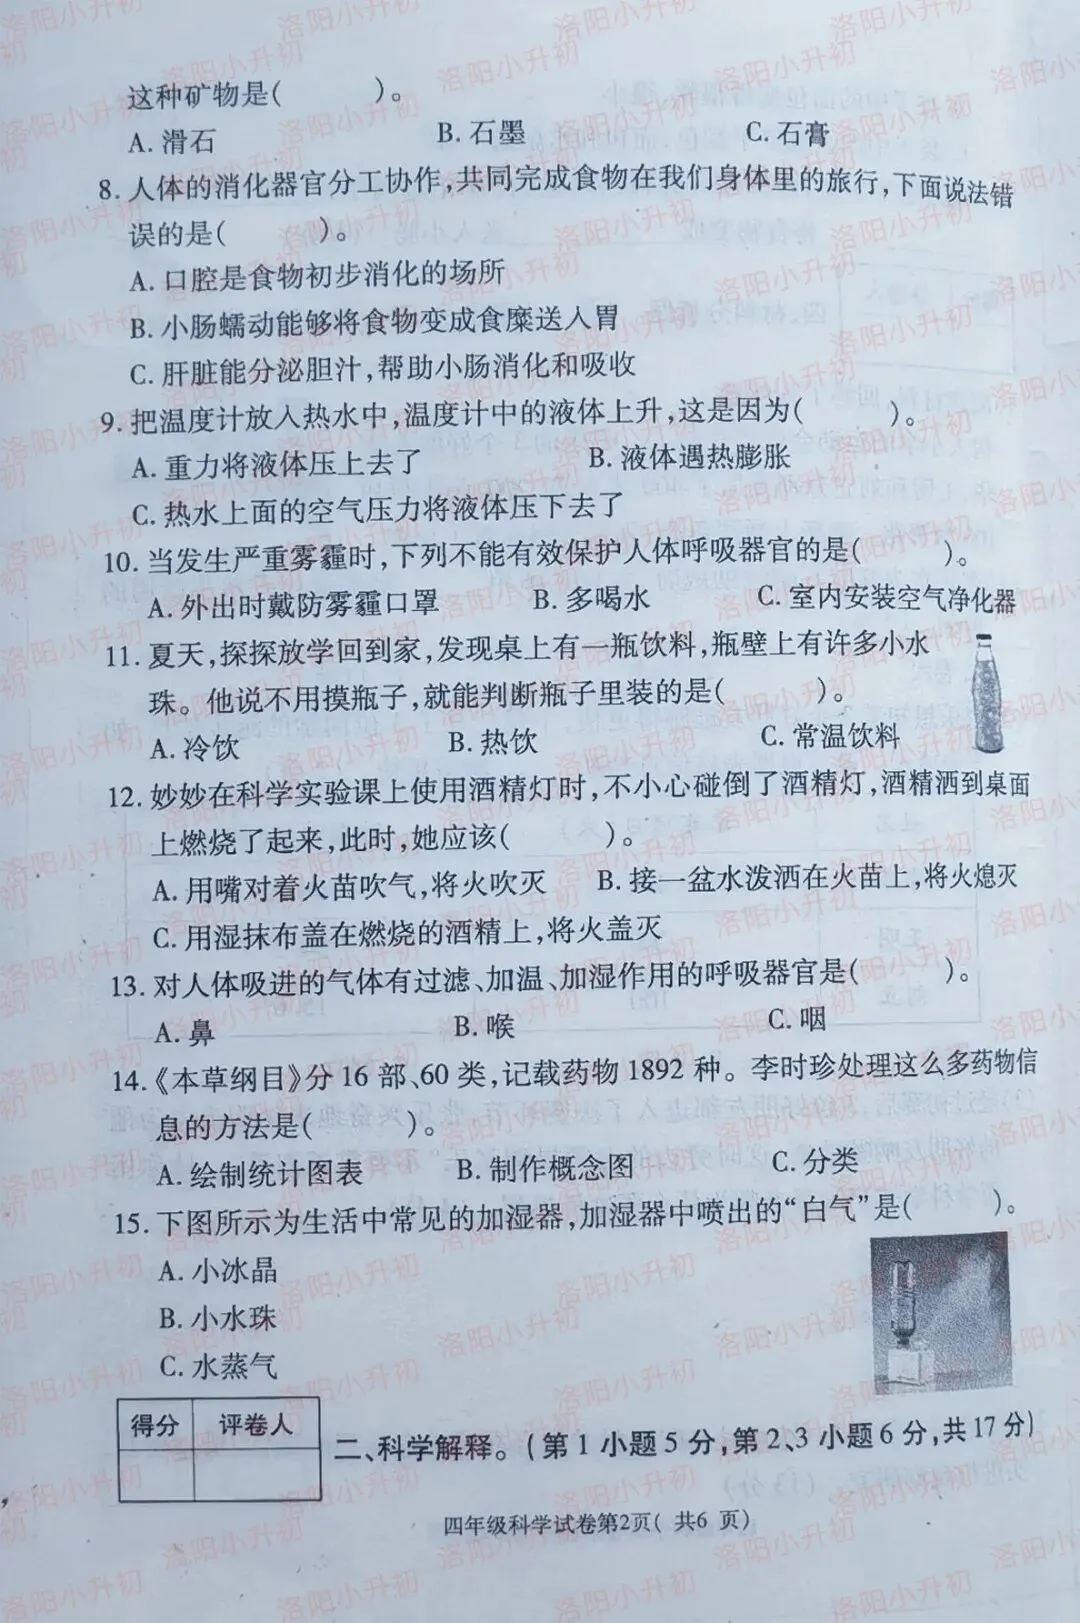 这种矿物是(　　　)。
A. 滑石　　　B. 石墨　　　C. 石膏
8. 人体的消化器官分工协作,共同完成食物在我们身体里的旅行,下面说法错
误的是(　　　)。
A. 口腔是食物初步消化的场所
B. 小肠蠕动能够将食物变成食糜送人胃
C. 肝脏能分泌胆汁,帮助小肠消化和吸收
9. 把温度计放入热水中,温度计中的液体上升,这是因为(　　　)。
A. 重力将液体压上去了　　　B. 液体遇热膨胀
C. 热水上面的空气压力将液体压下去了
10. 当发生严重雾霾时,下列不能有效保护人体呼吸器官的是(　　　)。
A. 外出时戴防雾霾口罩　　　B. 多喝水　　　C. 室内安装空气净化器
11. 夏天,探探放学回到家,发现桌上有一瓶饮料,瓶壁上有许多小水
珠。他说不用摸瓶子,就能判断瓶子里装的是(　　　)。
A. 冷饮　　　B. 热饮　　　C. 常温饮料
12. 妙妙在科学实验课上使用酒精灯时,不小心碰倒了酒精灯,酒精洒到桌面
上燃烧了起来,此时,她应该(　　　)。
A. 用嘴对着火苗吹气,将火吹灭　　　B. 接一盆水泼洒在火苗上,将火熄灭
C. 用湿抹布盖在燃烧的酒精上,将火盖灭
13. 对人体吸进的气体有过滤、加温、加湿作用的呼吸器官是(　　　)。
A. 鼻　　　B. 喉　　　C. 咽
14.《本草纲目》分 16 部、60 类,记载药物 1892 种。李时珍处理这么多药物信
息的方法是(　　　)。
A. 绘制统计图表　　　B. 制作概念图　　　C. 分类
15. 下图所示为生活中常见的加湿器,加湿器中喷出的“白气”是(　　　)。
A. 小冰晶
B. 小水珠
C. 水蒸气
得分　评卷人
二、科学解释。(第 1 小题 5 分,第 2、3 小题 6 分,共 17 分)
四年级科学试卷第2页( 共6 页)
洛阳小升初